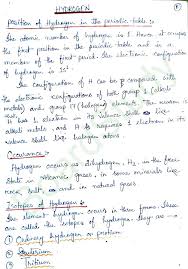 HYDROGEN
Position of Hydrogen in the periodic table :
The atomic number of hydrogen is 1. Hence it occupies
the first position in the periodic table and is a
member of the first period. The electronic configuration
of hydrogen is 1s¹
The configuration of H can be compared with
the electronic configurations of both group 1 (alkali
metals) and group 17 (halogens) element. The reason is
it has 1 electron in its valence shell like
alkali metals, and it requires 1 electron in its
valence shell like halogen atoms
Occurance :
Hydrogen occurs as dihydrogen, H₂, in the free
state in volcanic gases, in some minerals like
rock salt, and in natural gases.
Isotopes of Hydrogen :
The element hydrogen occurs in three forms. These
are called the isotopes of hydrogen. They are
① Ordinary hydrogen or protium
② Deuterium
③ Tritium